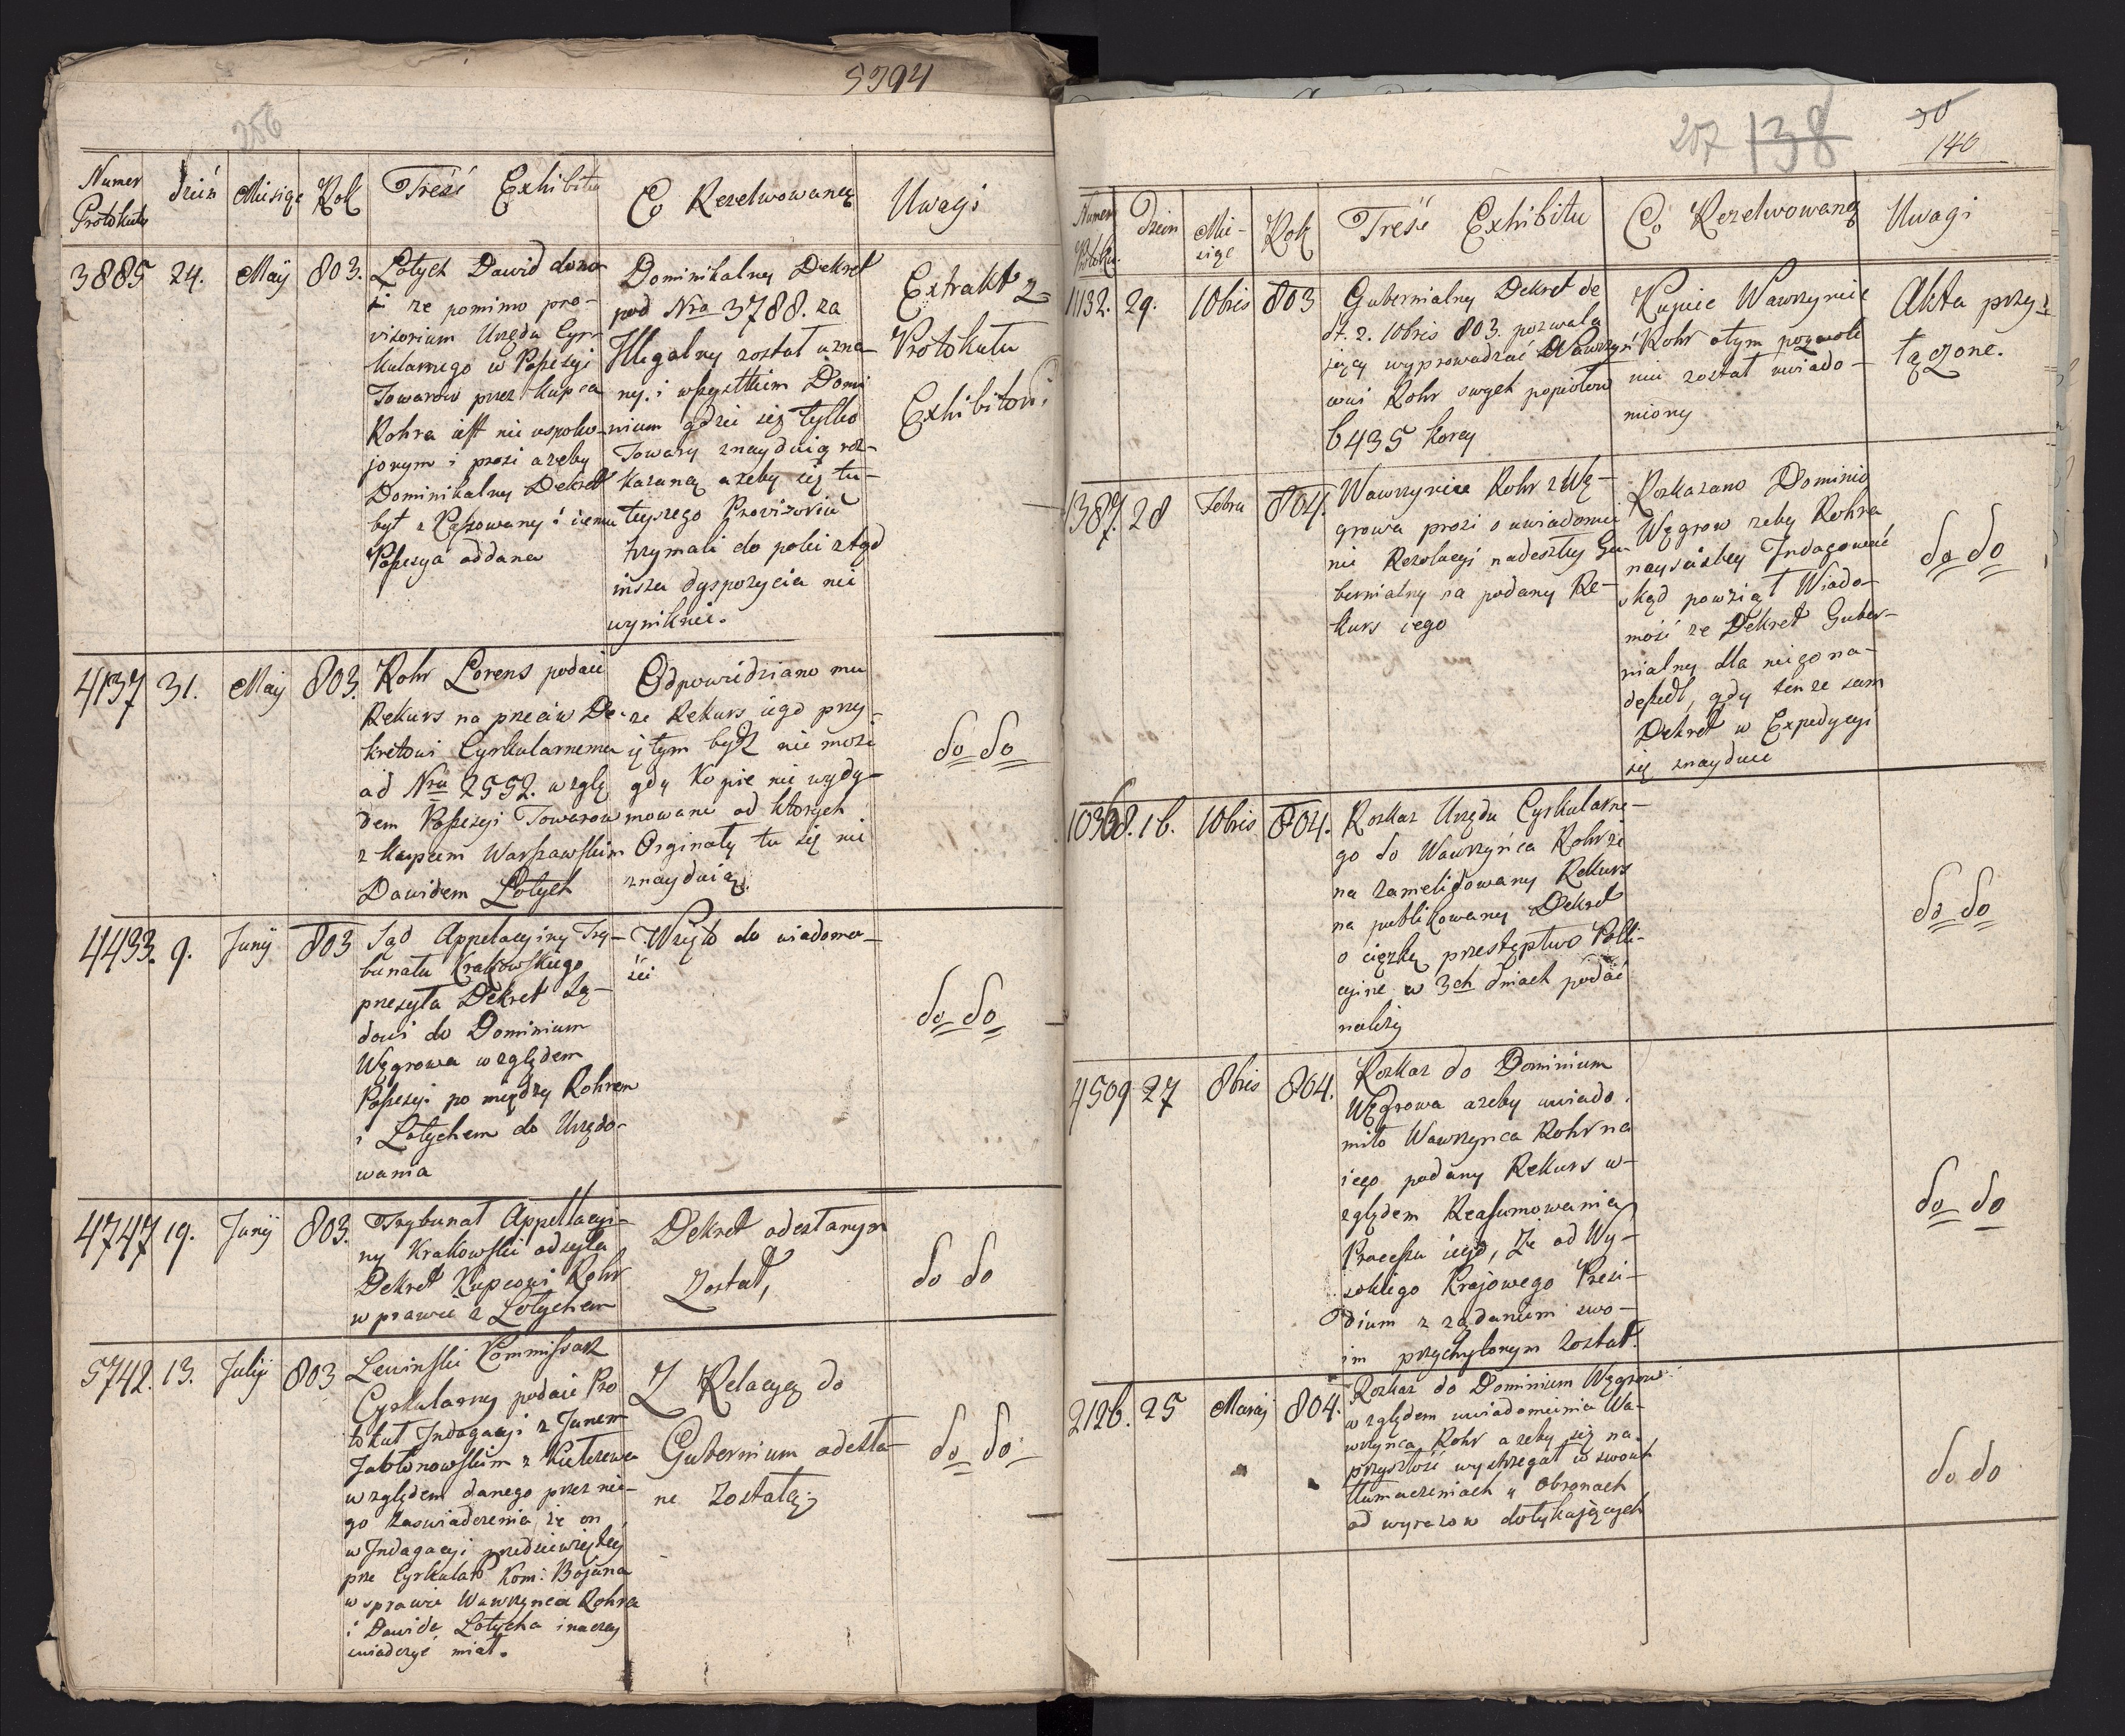 5394
256
Numer
Protokułu
dzień
Miesiąc
Rok
Treść Exhibitu
Co Rezelwowaną
Uwagi
3885 24. Maij 803.
Lotych Dawid dono-
si ze pomimo pro-
vizorium Urzędu Cyr-
kularnego w Possessyi
Towarow przez kupca
Kohra iest nie uspoko-
jonym i prosi azeby
Dominikalny Dekret
był z Kassowany i iemu
Possesya oddana
Dominikalny Dekret
pod Nro 3788. za
Illegalny został uzna-
ny. i wszystkim Domi
nium gdzie się tylko
Towary znayduią roz-
kazano azeby się tu-
teyszego Provizoriu
trzymali do poki ztąd
insza dyspozycia nie
wyniknie.
Extrakt z
Protokułu
Exhibitow
4137 31. Maij 803.
Rohr Lorens podaie
Rekurs na przeciw De-
kretowi Cyrkularnemu
ad Nro 2552. wzglę
dem Possesyi Towarow
z kupcem Warszawskim
Dawidem Lotych
Odpowiedziano mu
ze Rekurs iego przy-
iętym bydź nie może
gdy Kopie nie wydy-
mowane od ktorych
Orginały tu się nie
znayduią.
do do
4433. 9. Junij 803
Sąd Appelacyiny Try-
bunału Krakowskiego
przesyła Dekret Są-
dowi do Dominium
Węgrowa względem
Possesyi po między Rohrem
i Lotychem do Urzędo-
wania
Wzięto do wiadomo-
ści
do do
4747 19. Junij 803.
Trybunał Appellacyi-
ny Krakowski odsyła
Dekret Kupcowi Rohr
w prawie z Lotychem
Dekret odesłanym
Został,
do do
5742. 13. Julij 803
Lewinski Kommissarz
Cyrkularny podaie Pro
tokuł Indagacyi z Janem
Jabłonowskim z
względem danego przez nie-
go zaswiadczenia że on
w Indagacyi przedsięwziętey
prze Cyrkular Kom: Bojana
w sprawie Wawrzynca Rohra
i Dawida Lotycha inaczey
swiadczyć miał.
Z Relacyą do
Gubernium odesła-
ne zostały
do do
257 138
30
140
Numer
Protokułu
Dzien
Mie-
siąc
Rok
Treść Exhibitu
Co Rezelwowaną
Uwagi
1132. 29. 10bris 803
Gubernialny Dekret de
dt. 2. 10bris 803. pozwala
iący wyprowadzać Wawrzyń
cowi Rohr swych popiołow
6435 korcy
Kupiec Wawrzyniec
Rohr o tym pozwole
niu został uwiado-
miony
Akta przy-
łączone.
1387. 28 Febru 804.
Wawrzyniec Rohr z Wę-
growa prosi o uwiadomie
nie Rezolucyi nadeszłey Gu-
bernialny na podany Re-
kurs iego
Rozkazano Dominio
Węgrow zeby Rohra
nayscisley Indagować
skąd powziął Wiado-
mość ze Dekret Guber-
nialny dla niego na-
deszedł, gdy tenze sam
Dekret w Expedycyi
się znayduie
do do
10368. 16. 10bris 804.
Rozkaz Urzędu Cyrkularne-
go do Wawrzyńca Rohr że
na zameldowany Rekurs
na publikowany Dekret
o ciężkę przestępstwo Polli-
cyine w 3ch dniach podać
należy
do do
4509 27 8bris 804.
Rozkaz do Dominium
Węgrowa azeby uwiado-
miło Wawrzynca Rohr na
iego podany Rekurs w-
zględem Reassumowania
Processu iego, Że od Wy-
sokiego Krajowego Presi-
dium z żądaniem swo-
im przychylonym został.
do do
2126. 25 Marij 804.
Rozkaz do Dominium Węgrow
względem uwiadomienia Wa-
wrzynca Rohr azeby się na
przyszłość wystrzegał w swoich
tłumaczeniach y obronach
od wyrazow dotykaiących
do do